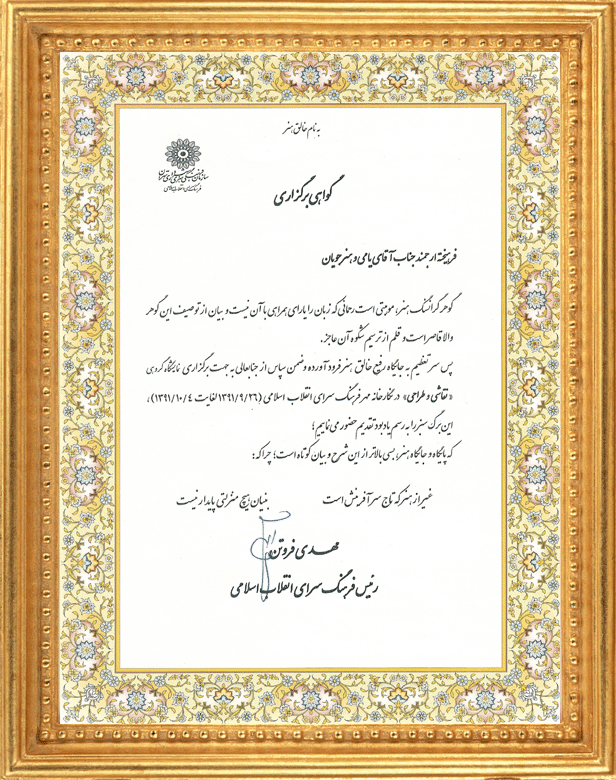 به نام خالق هنر
سازمان فرهنگی هنری شهرداری تهران
فرهنگسرای انقلاب اسلامی
گواهی برگزاری
فرهیخته ارجمند جناب آقای یامی و هنرجویان
گوهر گرانسنگ هنر، موهبتی است رحمانی که زبان را یارای همراهی با آن نیست و بیان از توصیف این گوهر
والا قاصر است و قلم از ترسیم شکوه آن عاجز.
پس سر تعظیم به جایگاه رفیع خالق هنر فرود آورده و ضمن سپاس از جنابعالی به جهت برگزاری نمایشگاه گروهی
«نقاشی و طراحی» در نگارخانه مهر فرهنگ سرای انقلاب اسلامی (۱۳۹۱/۹/۲۶ لغایت ۱۳۹۱/۱۰/۴)،
این برگ سبز را به رسم یادبود تقدیم حضور می نماییم؛
که پایگاه و جایگاه هنر، بسی بالاتر از این شرح و بیان کوتاه است؛ چرا که:
غیر از هنر که تاج سر آفرینش است بنیان هیچ منزلتی پایدار نیست
مهدی فروتن
رئیس فرهنگ سرای انقلاب اسلامی